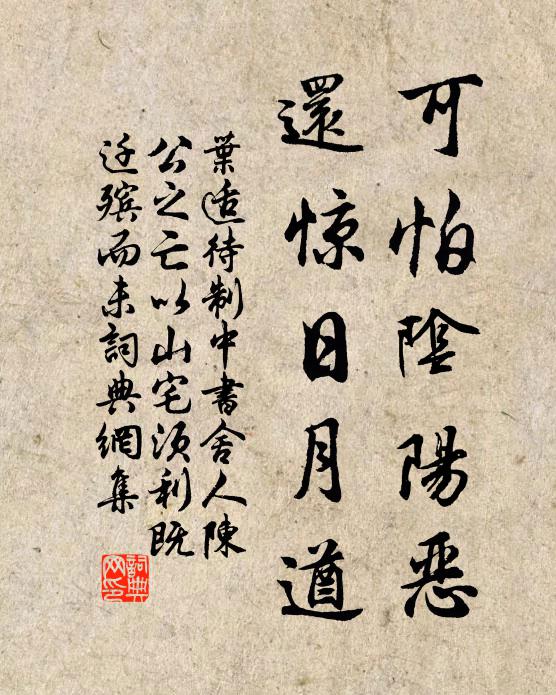 可怕陰陽惡
還惊日月遒
葉适待制中書舍人陳
公之亡以山宅須利既
迁殯而未詞典網集
詞典網印